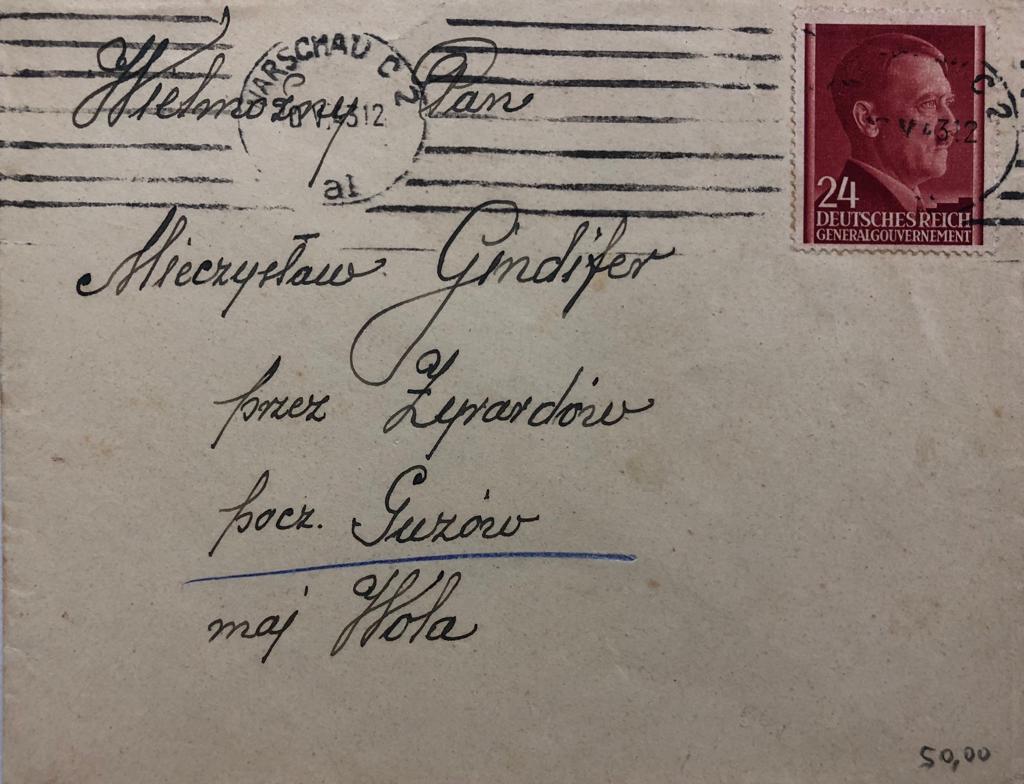 WARSCHAU C 2
Wielmożny Pan
43.12
a1
C 2
V. 43.12
24
DEUTSCHES REICH
GENERALGOUVERNEMENT
Mieczysław Gindifer
przez Żyrardów
pocz. Guzów
maj Wola
50,00